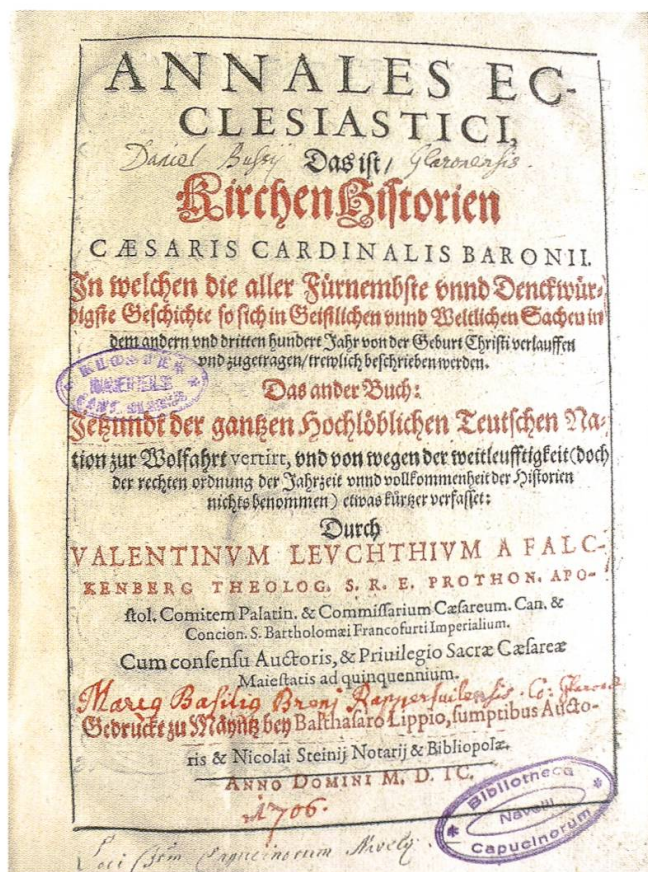 ANNALES EC-
CLESIASTICI,
Daniel Das ist/ Glaronensis.
KirchenHistorien
CÆSARIS CARDINALIS BARONII.
In welchen die aller Fürnembste vnnd Denckwür-
digste Geschichte so sich in Geistlichen vnnd Weltlichen Sachen in
dem andern vnd dritten hundert Jahr von der Geburt Christi verlauffen
vnd zugetragen/trewlich beschrieben werden.
KLOSTER
NÆFELS
CANT. GLARUS
Das ander Buch:
Jetzundt der gantzen Hochlöblichen Teutschen Na-
tion zur Wolfahrt vertirt, vnd von wegen der weitleufftigkeit (doch
der rechten ordnung der Jahrzeit vnnd vollkommenheit der Historien
nichts benommen) etwas kürtzer verfasset:
Durch
VALENTINVM LEVCHTHIVM A FALC-
KENBERG THEOLOG. S. R. E. PROTHON. APO-
stol. Comitem Palatin. & Commissarium Cæsareum. Can. &
Concion. S. Bartholomæi Francofurti Imperialium.
Cum consensu Auctoris, & Priuilegio Sacræ Cæsareæ
Maiestatis ad quinquennium.
Basilig Rappersuilensis
Gedruckt zu Mäyntz bey Balthasaro Lippio, sumptibus Aucto-
ris & Nicolai Steinij Notarij & Bibliopolæ.
ANNO DOMINI M. D. IC.
1706.
Bibliotheca
Navelii
Capucinorum
Loci Capucinorum